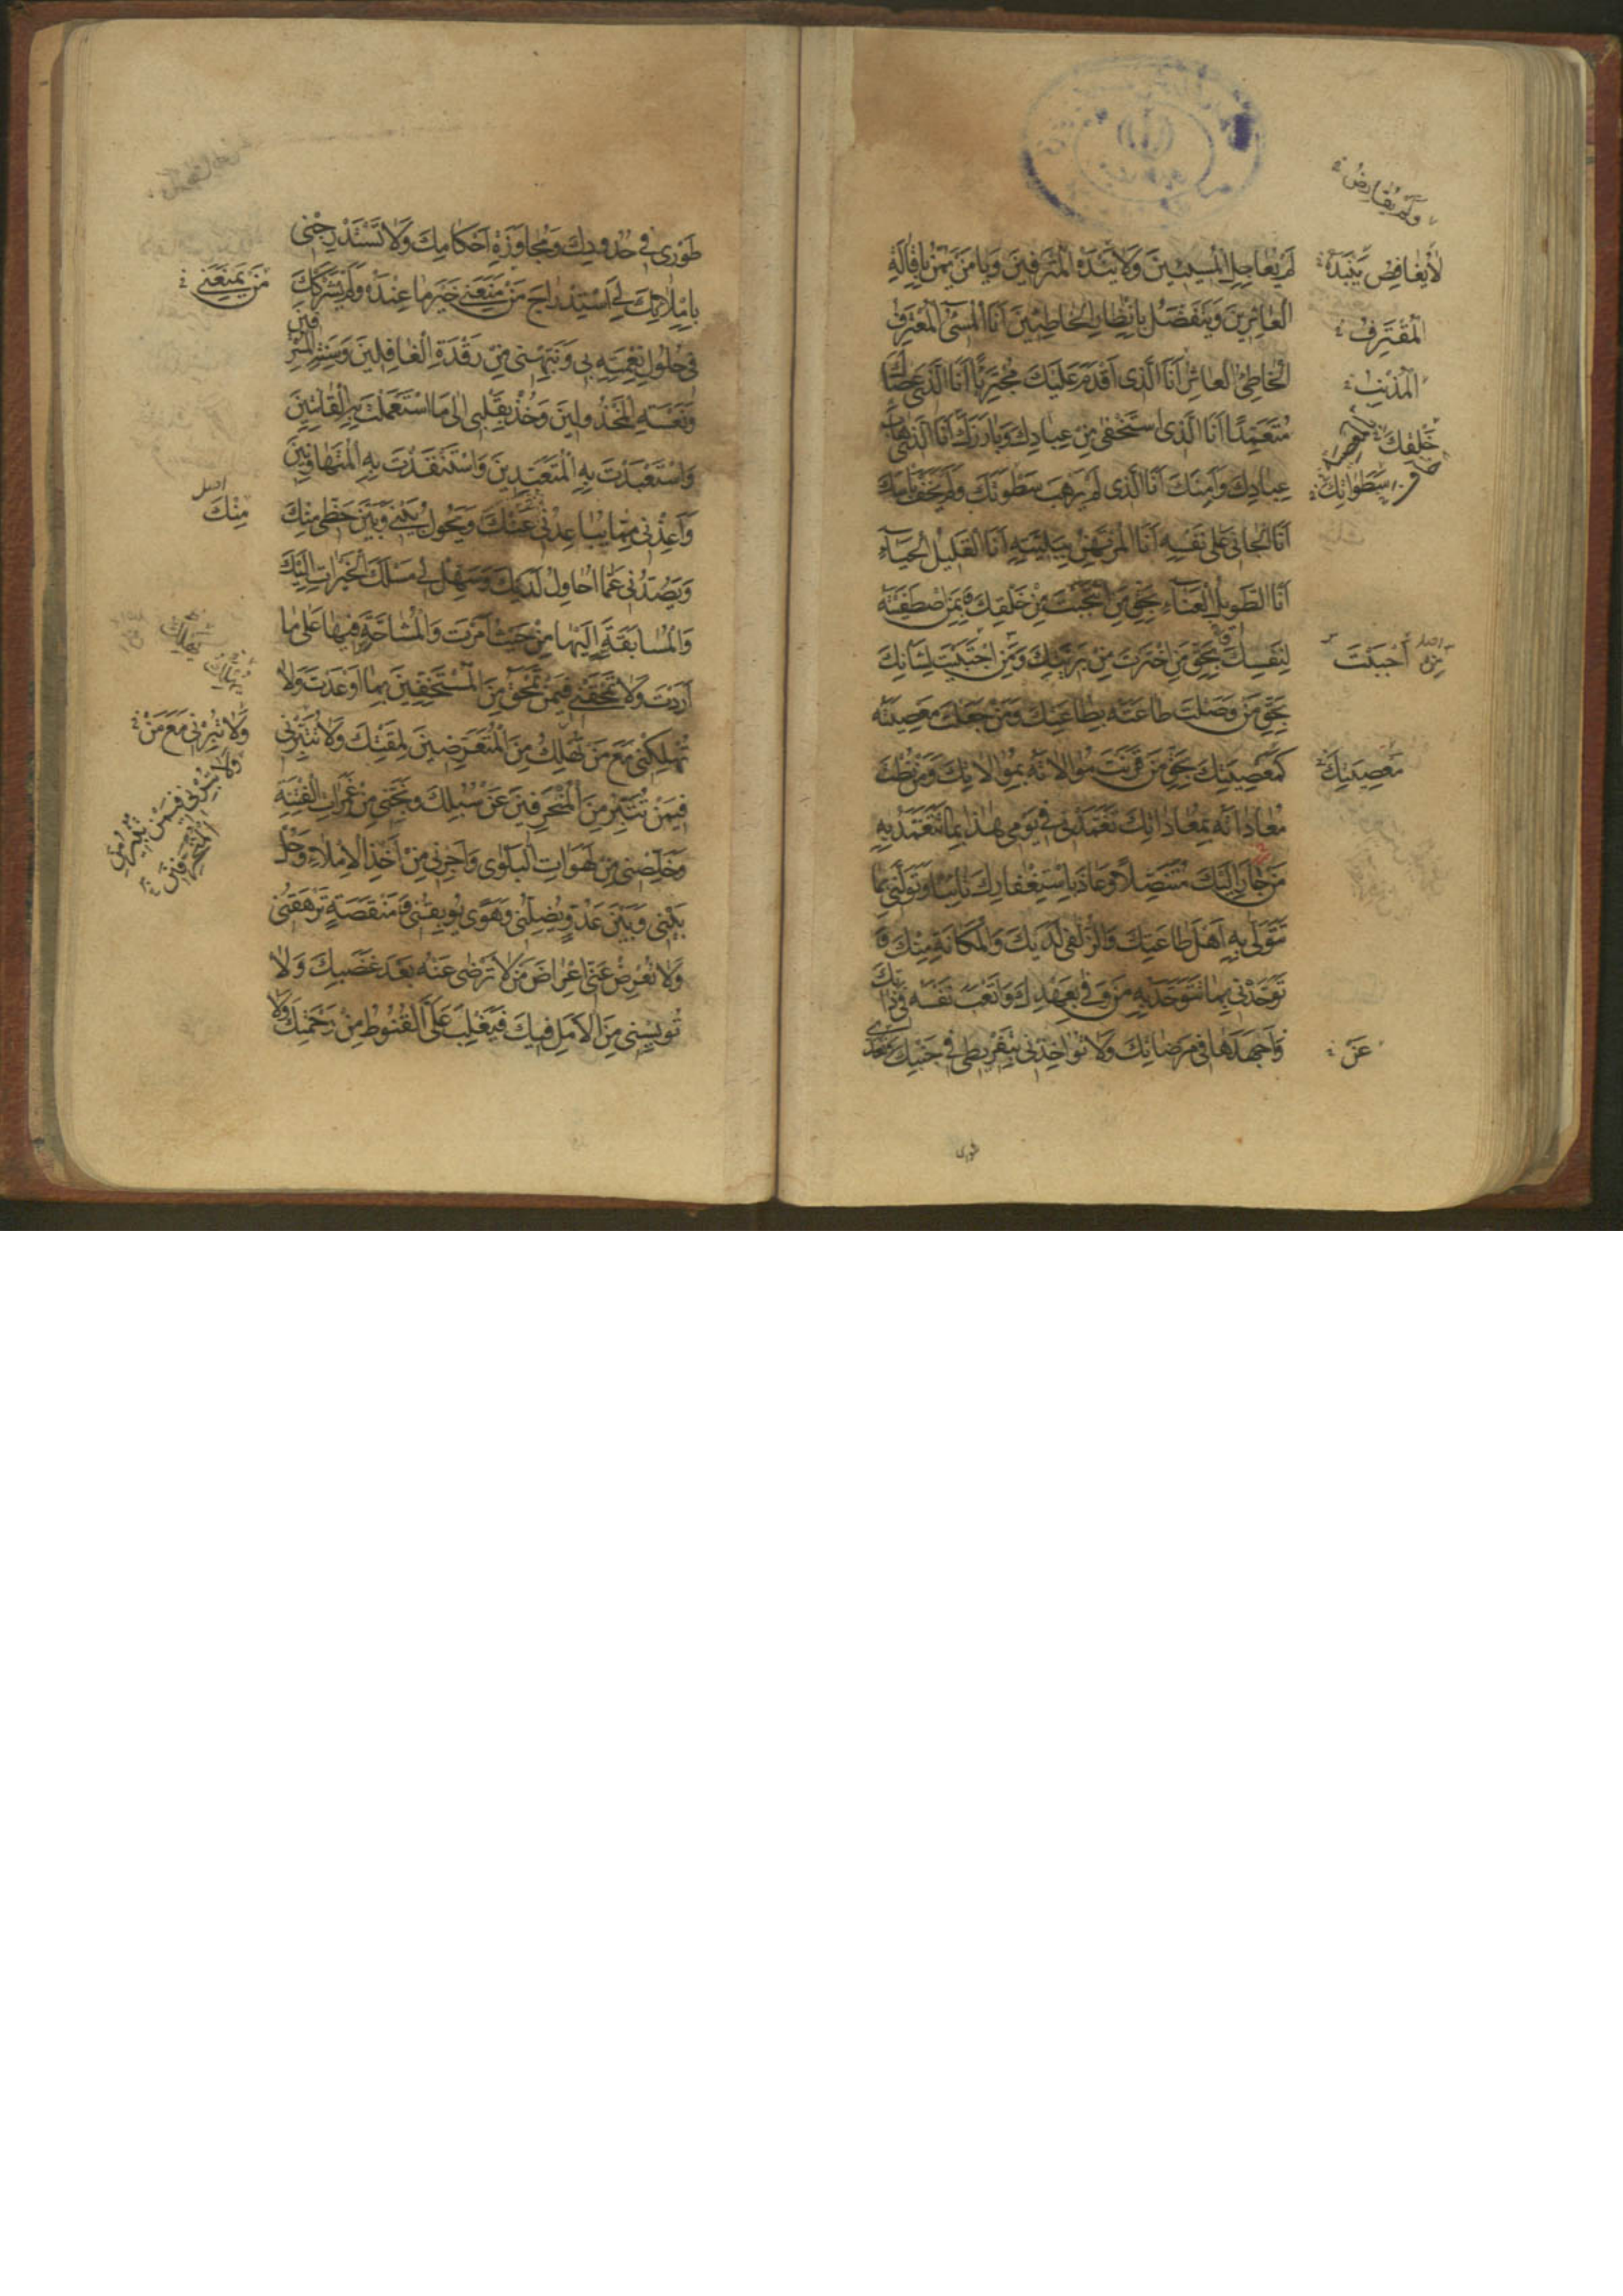 لَمْ يُعَاجِلِ الْمُسِيئِينَ وَلَا يَنْدَهُ الْمُتْرَفِينَ وَيَا مَنْ يَمُنُّ بِإِقَالَةِ
الْعَاثِرِينَ وَيَتَفَضَّلُ بِإِنْظَارِ الْخَاطِئِينَ أَنَا الْمُسِيءُ الْمُعْتَرِفُ
الْخَاطِئُ الْعَاثِرُ أَنَا الَّذِي أَقْدَمَ عَلَيْكَ مُجْتَرِئًا أَنَا الَّذِي عَصَاكَ
مُتَعَمِّدًا أَنَا الَّذِي اسْتَخْفَى مِنْ عِبَادِكَ وَبَارَزَكَ أَنَا الَّذِي هَابَ
عِبَادَكَ وَأَمِنَكَ أَنَا الَّذِي لَمْ يَرْهَبْ سَطْوَتَكَ وَلَمْ يَخَفْ بَأْسَكَ
أَنَا الْجَانِي عَلَى نَفْسِهِ أَنَا الْمُرْتَهَنُ بِبَلِيَّتِهِ أَنَا الْقَلِيلُ الْحَيَاءِ
أَنَا الطَّوِيلُ الْعَنَاءِ بِحَقِّ مَنِ انْتَجَبْتَ مِنْ خَلْقِكَ وَبِمَنِ اصْطَفَيْتَهُ
لِنَفْسِكَ بِحَقِّ مَنِ اخْتَرْتَ مِنْ بَرِيَّتِكَ وَمَنِ اجْتَبَيْتَ لِشَأْنِكَ
بِحَقِّ مَنْ وَصَلْتَ طَاعَتَهُ بِطَاعَتِكَ وَمَنْ جَعَلْتَ مَعْصِيَتَهُ
كَمَعْصِيَتِكَ بِحَقِّ مَنْ قَرَنْتَ مُوَالَاتَهُ بِمُوَالَاتِكَ وَمَنْ نُطْتَ
مُعَادَاتَهُ بِمُعَادَاتِكَ تَغَمَّدْنِي فِي يَوْمِي هَذَا بِمَا تَتَغَمَّدُ بِهِ
مَنْ جَارَ إِلَيْكَ مُتَنَصِّلًا وَعَاذَ بِاسْتِغْفَارِكَ تَائِبًا وَتَوَلَّنِي بِمَا
تَتَوَلَّى بِهِ أَهْلَ طَاعَتِكَ وَالزُّلْفَى لَدَيْكَ وَالْمَكَانَةِ مِنْكَ وَ
تَوَحَّدْنِي بِمَا تَتَوَحَّدُ بِهِ مَنْ وَفَى بِعَهْدِكَ وَأَتْعَبَ نَفْسَهُ فِي ذَاتِكَ
وَأَجْهَدَهَا فِي مَرْضَاتِكَ وَلَا تُؤَاخِذْنِي بِتَفْرِيطِي فِي جَنْبِكَ وَتَعَدِّي
طوری
وَلَمْ يُقَارِضْ
لَا يُغَافِصُ يَنْبَدُهُ
الْمُقْتَرِفُ
الْمُذْنِبُ
خَلْقِكَ
سَطَوَاتِكَ
مَنْ أَحْبَبْتَ
مَعْصِيَتِكَ
عَنْ
طَوْرِي فِي حُدُودِكَ وَمُجَاوَزَةِ أَحْكَامِكَ وَلَا تَسْتَدْرِجْنِي
بِإِمْلَائِكَ لِي اسْتِدْرَاجَ مَنْ مَنَعَنِي خَيْرَ مَا عِنْدَهُ وَلَمْ يَشْرَكْكَ
فِي حُلُولِ نِعْمَتِهِ بِي وَنَبِّهْنِي مِنْ رَقْدَةِ الْغَافِلِينَ وَسِنَةِ الْمُسْرِفِينَ
وَنَعْسَةِ الْمَخْذُولِينَ وَخُذْ بِقَلْبِي إِلَى مَا اسْتَعْمَلْتَ بِهِ الْقَانِتِينَ
وَاسْتَعْبَدْتَ بِهِ الْمُتَعَبِّدِينَ وَاسْتَنْقَذْتَ بِهِ الْمُتَهَاوِنِينَ
وَأَعِذْنِي مِمَّا يُبَاعِدُنِي عَنْكَ وَيَحُولُ بَيْنِي وَبَيْنَ حَظِّي مِنْكَ
وَيَصُدُّنِي عَمَّا أُحَاوِلُ لَدَيْكَ وَسَهِّلْ لِي مَسْلَكَ الْخَيْرَاتِ إِلَيْكَ
وَالْمُسَابَقَةَ إِلَيْهَا مِنْ حَيْثُ أَمَرْتَ وَالْمُشَاحَّةَ فِيهَا عَلَى مَا
أَرَدْتَ وَلَا تَمْحَقْنِي فِيمَنْ تَمْحَقُ مِنَ الْمُسْتَخِفِّينَ بِمَا أَوْعَدْتَ وَلَا
تُهْلِكْنِي مَعَ مَنْ تُهْلِكُ مِنَ الْمُتَعَرِّضِينَ لِمَقْتِكَ وَلَا تُتَبِّرْنِي
فِيمَنْ تُتَبِّرُ مِنَ الْمُنْحَرِفِينَ عَنْ سُبُلِكَ وَنَجِّنِي مِنْ غَمَرَاتِ الْفِتْنَةِ
وَخَلِّصْنِي مِنْ لَهَوَاتِ الْبَلْوَى وَأَجِرْنِي مِنْ أَخْذِ الْإِمْلَاءِ وَحُلْ
بَيْنِي وَبَيْنَ عَدُوٍّ يُضِلُّنِي وَهَوًى يُوبِقُنِي وَمَنْقَصَةٍ تَرْهَقُنِي
وَلَا تُعْرِضْ عَنِّي إِعْرَاضَ مَنْ لَا تَرْضَى عَنْهُ بَعْدَ غَضَبِكَ وَلَا
تُؤْيِسْنِي مِنَ الْأَمَلِ فِيكَ فَيَغْلِبَ عَلَيَّ الْقُنُوطُ مِنْ رَحْمَتِكَ وَلَا
مَنْ يَمْنَعُنِي
مِنْكَ
وَلَا تُبِرْنِي مَعَ مَنْ
وَلَا تُبِرْنِي فِيمَنْ تُبِيرُ مِنَ
الْمُنْحَرِفِينَ